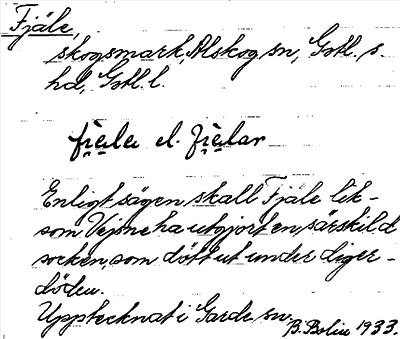 Fjäle,
skogsmark, Alskog sn, Gotl. s.
hd, Gotl. l.
fi̯è̱la el. fi̯è̱lar
Enligt sägen skall Fjäle lik-
som Vejne ha utgjort en särskild
socken, som dött ut under diger-
döden.
Upptecknat i Garde sn.
B. Bolin 1933.